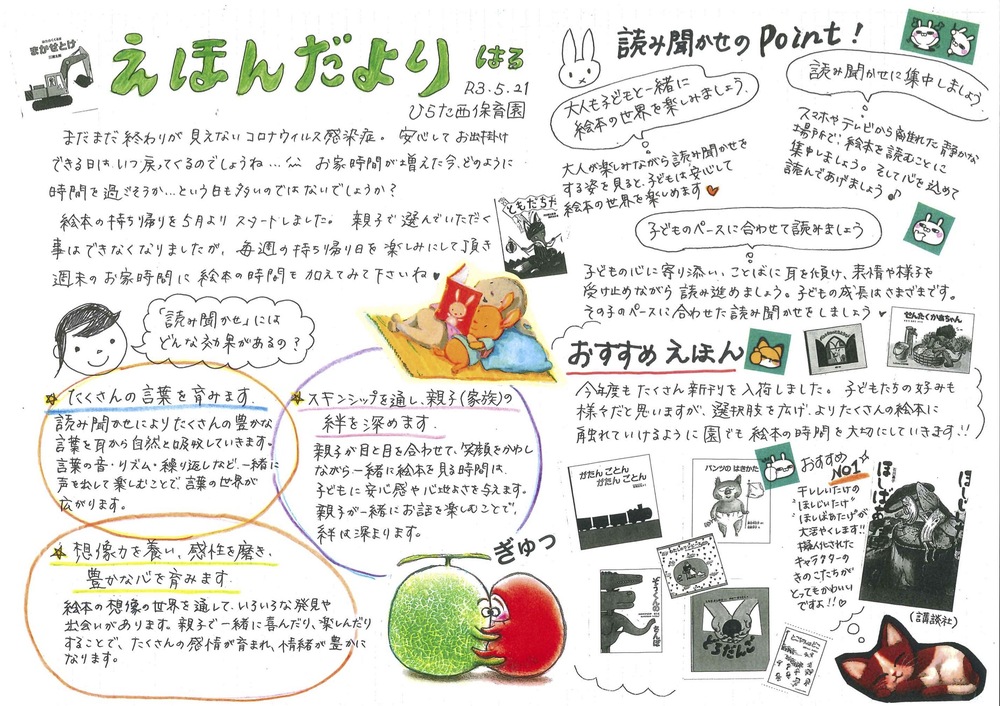 まかせとけ
えほんだより はる
R3.5.21
ひらた西保育園
まだまだ終わりが見えないコロナウィルス感染症。安心してお出掛け
できる日はいつ戻ってくるのでしょうね…^^; お家時間が増えた今、どのように
時間を過ごそうか…という日も多いのではないでしょうか?
絵本の持ち帰りを5月よりスタートしました。親子で選んでいただく
事はできなくなりましたが、毎週の持ち帰り日を楽しみにして頂き
週末のお家時間に絵本の時間も加えてみて下さいね♥
ともだちだ
「読み聞かせ」には
どんな効果があるの?
☆たくさんの言葉を育みます.
読み聞かせによりたくさんの豊かな
言葉を耳から自然と吸収していきます。
言葉の音・リズム・繰り返しなど、一緒に
声を出して楽しむことで、言葉の世界が
広がります。
☆スキンシップを通し、親子(家族)の
絆を深めます.
親子が目と目を合わせて、笑顔をかわし
ながら一緒に絵本を見る時間は、
子どもに安心感や心地よさを与えます。
親子が一緒にお話を楽しむことで、
絆は深まります。
☆想像力を養い、感性を磨き、
豊かな心を育みます.
絵本の想像の世界を通して、いろいろな発見や
出会いがあります。親子で一緒に喜んだり、楽しんだり
することで、たくさんの感情が育まれ、情緒が豊かに
なります。
ぎゅっ
読み聞かせのPoint!
大人も子どもと一緒に
絵本の世界を楽しみましょう.
大人が楽しみながら読み聞かせを
する姿を見ると、子どもは安心して
絵本の世界を楽しめます♥
読み聞かせに集中しましょう.
スマホやテレビから離れた静かな
場所で、絵本を読むことに
集中しましょう。そして心を込めて
読んであげましょう♪
子どものペースに合わせて読みましょう
子どもの心に寄り添い、ことばに耳を傾け、表情や様子を
受け止めながら読み進めましょう。子どもの成長はさまざまです。
その子のペースに合わせた読み聞かせをしましょう♥
せんたくかあちゃん
おすすめえほん
今年度もたくさん新刊を入荷しました。子どもたちの好みも
様々だと思いますが、選択肢を広げ、よりたくさんの絵本に
触れていけるように園でも絵本の時間を大切にしていきます!!
がたん ごとん
がたん ごとん
パンツのはきかた
どろだんご
おすすめ
NO1
干ししいたけの
ほしじいたけ
ほしばあたけが
大活やくします!!
擬人化された
キャラクターの
きのこたちが
とってもかわいい
ですよ!!♡
ほしじいたけ
ほしばあたけ
(講談社)